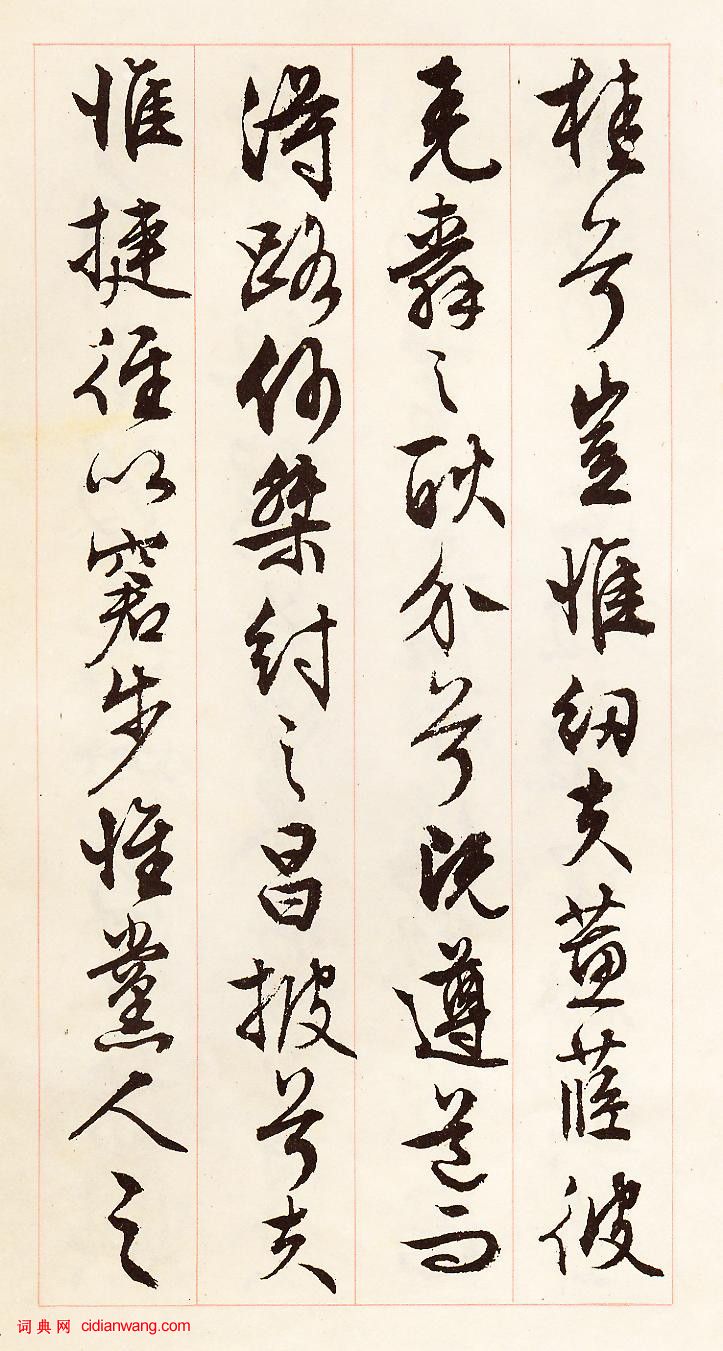 桂兮豈惟紉夫蕙茝彼
堯舜之耿介兮既遵道而
得路何桀紂之昌披兮夫
惟捷徑以窘步惟黨人之
词典网 cidianwang.com